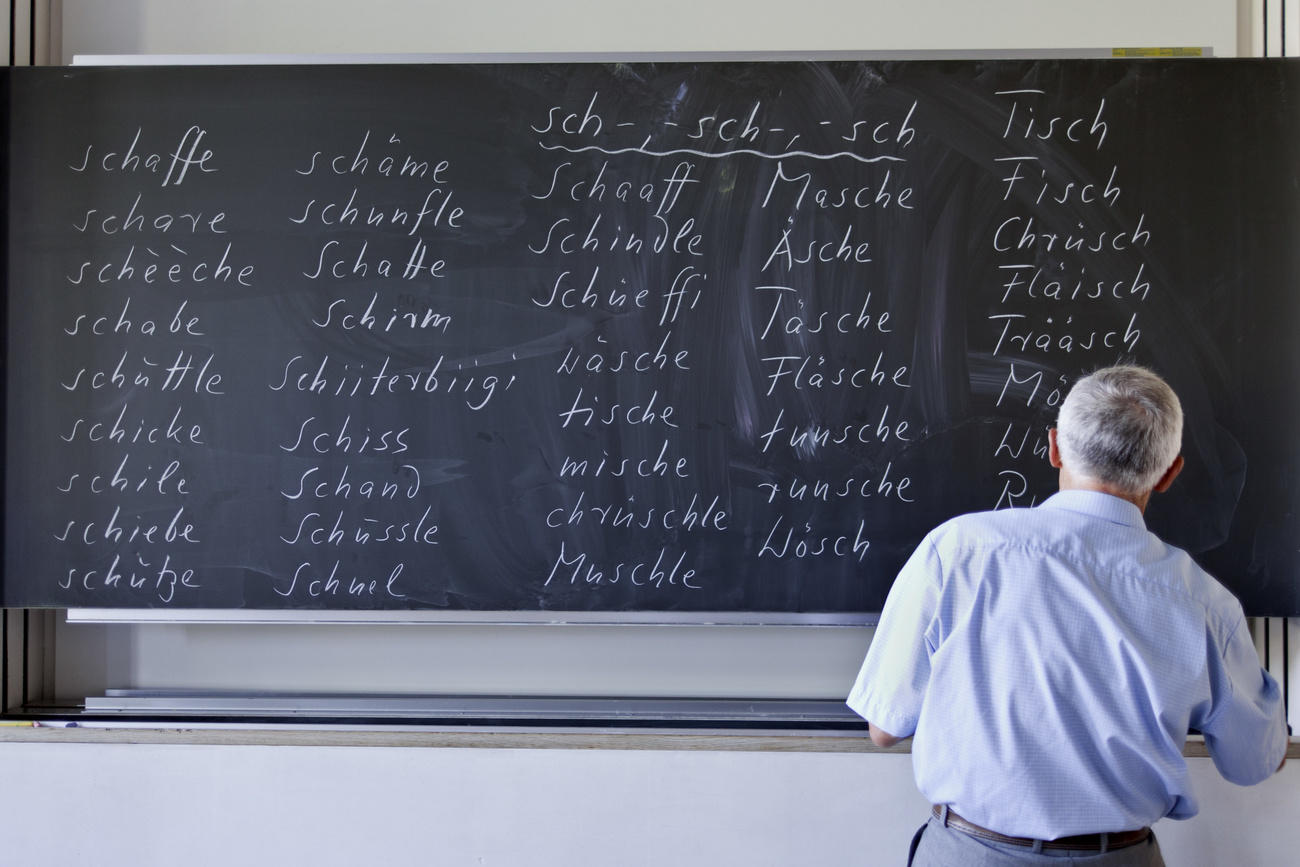 sch-, -sch-, -sch
schaffe
schare
schèèche
schabe
schüttle
schicke
schile
schiebe
schütze
schäme
schunfle
Schatte
Schirm
Schiiterbiigi
Schiss
Schand
Schüssle
Schnel
Schaaff
Schindle
Schüeffi
wäsche
tische
mische
chrüschle
Muschle
Masche
Äsche
Täsche
Fläsche
tunsche
runsche
Wösch
Tisch
Fisch
Chrüsch
Fläisch
Trääsch